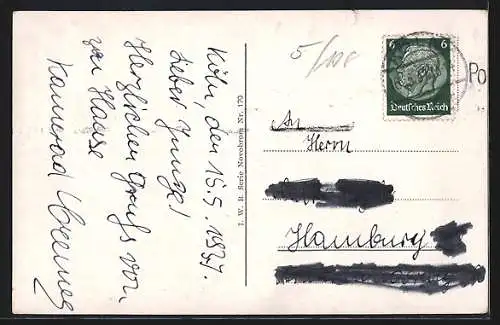 Köln, den 15.9.1937.
Lieber Junge!
Herzlichen Gruß von
zu Hause
Kamerad
I. W. B. Serie Novobrom Nr. 170
5/108
6 6
Deutsches Reich
Po
An
Herrn
Hamburg